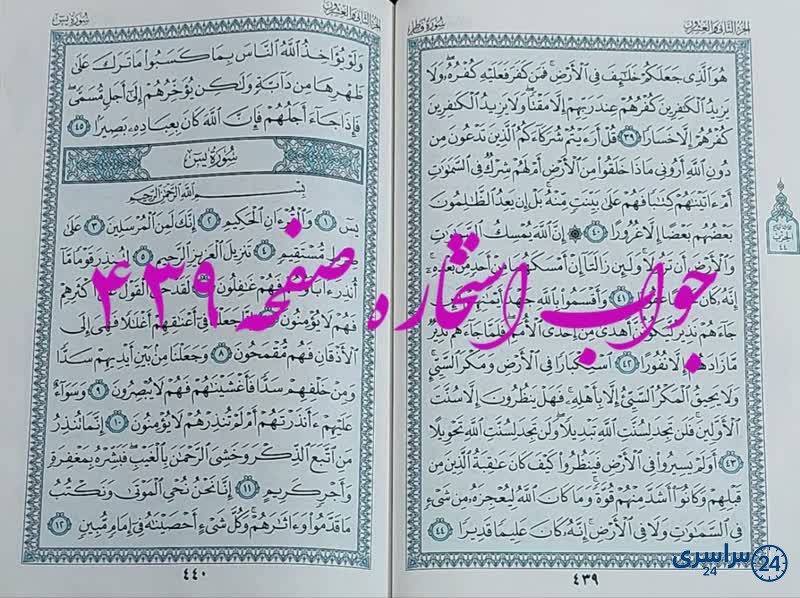 الجزء الثاني والعشرون
سورة فاطر
هو الذي جعلكم خلٰئف في الأرض فمن كفر فعليه كفره ولا
يزيد الكٰفرين كفرهم عند ربهم إلا مقتا ولا يزيد الكٰفرين
كفرهم إلا خسارا ٣٩ قل أرءيتم شركاءكم الذين تدعون من
دون الله أروني ماذا خلقوا من الأرض أم لهم شرك في السمٰوٰت
أم ءاتينٰهم كتٰبا فهم على بينت منه بل إن يعد الظٰلمون
بعضهم بعضا إلا غرورا ٤٠ إن الله يمسك السمٰوٰت
والأرض أن تزولا ولئن زالتا إن أمسكهما من أحد من بعده
إنه كان ٤١ وأقسموا بالله جهد أيمٰنهم
جاءهم نذير ليكونن أهدى من إحدى الأمم فلما جاءهم نذير
ما زادهم إلا نفورا ٤٢ استكبارا في الأرض ومكر السيئ
ولا يحيق المكر السيئ إلا بأهله فهل ينظرون إلا سنت
الأولين فلن تجد لسنت الله تبديلا ولن تجد لسنت الله تحويلا
٤٣ أولم يسيروا في الأرض فينظروا كيف كان عٰقبة الذين من
قبلهم وكانوا أشد منهم قوة وما كان الله ليعجزه من شيء
في السمٰوٰت ولا في الأرض إنه كان عليما قديرا ٤٤
٤٣٩
الجزء الثاني والعشرون
سورة يس
ولو يؤاخذ الله الناس بما كسبوا ما ترك على
ظهرها من دابة ولٰكن يؤخرهم إلى أجل مسمى
فإذا جاء أجلهم فإن الله كان بعباده بصيرا ٤٥
سورة يس
بسم الله الرحمٰن الرحيم
يس ١ والقرءان الحكيم ٢ إنك لمن المرسلين ٣ على
صرٰط مستقيم ٤ تنزيل العزيز الرحيم ٥ لتنذر قوما ما
أنذر ءاباؤهم فهم غٰفلون ٦ لقد حق القول على أكثرهم
فهم لا يؤمنون ٧ إنا جعلنا في أعنٰقهم أغلٰلا فهي إلى
الأذقان فهم مقمحون ٨ وجعلنا من بين أيديهم سدا
ومن خلفهم سدا فأغشينٰهم فهم لا يبصرون ٩ وسواء
عليهم ءأنذرتهم أم لم تنذرهم لا يؤمنون ١٠ إنما تنذر
من اتبع الذكر وخشي الرحمٰن بالغيب فبشره بمغفرة
وأجر كريم ١١ إنا نحن نحي الموتى ونكتب
ما قدموا وءاثٰرهم وكل شيء أحصينٰه في إمام مبين ١٢
٤٤٠
جواب استخاره صفحه ۴۳۹
سراسری
24
24